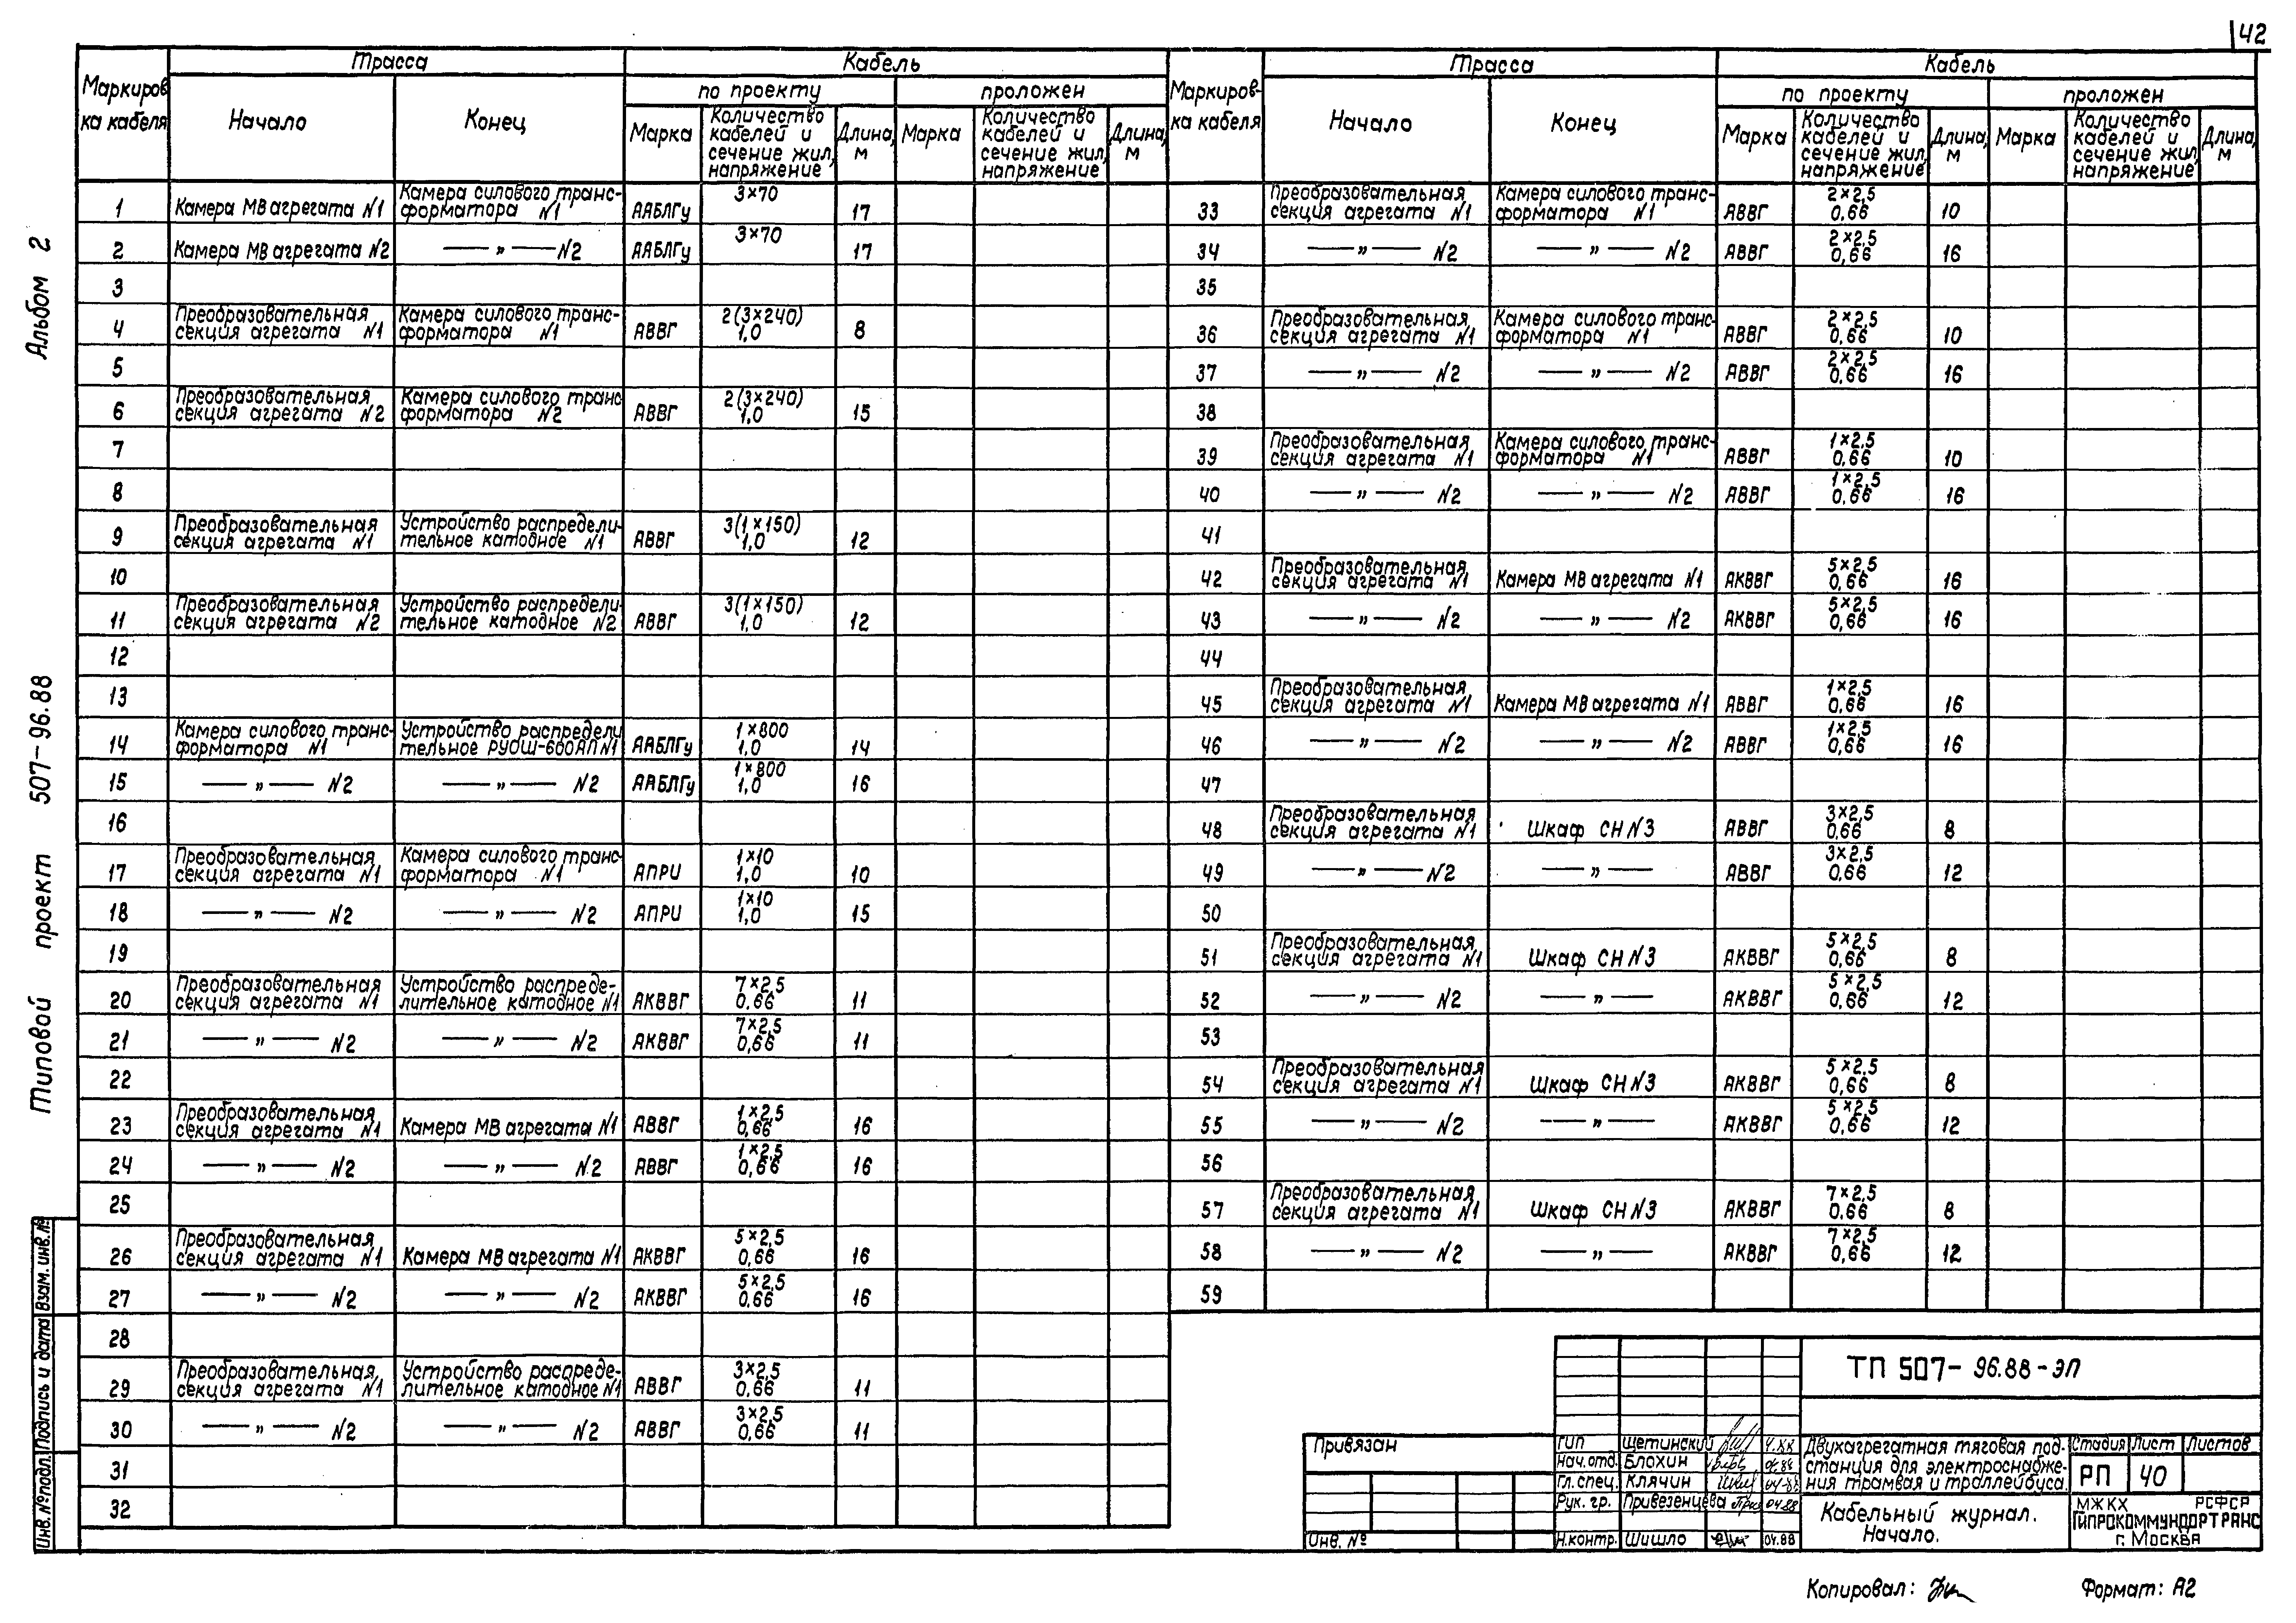 42
Альбом 2
Типовой проект 507-96.88
Взам. инв. №
Подпись и дата
Инв. № подл.
Маркировка кабеля | Трасса | Кабель
Начало | Конец | по проекту | проложен
Марка | Количество кабелей и сечение жил, напряжение | Длина, м | Марка | Количество кабелей и сечение жил, напряжение | Длина, м
1 | Камера МВ агрегата N1 | Камера силового трансформатора N1 | ААБЛГу | 3×70 | 17
2 | Камера МВ агрегата N2 | —„— N2 | ААБЛГу | 3×70 | 17
3
4 | Преобразовательная секция агрегата N1 | Камера силового трансформатора N1 | АВВГ | 2(3×240) 1,0 | 8
5
6 | Преобразовательная секция агрегата N2 | Камера силового трансформатора N2 | АВВГ | 2(3×240) 1,0 | 15
7
8
9 | Преобразовательная секция агрегата N1 | Устройство распределительное катодное N1 | АВВГ | 3(1×150) 1,0 | 12
10
11 | Преобразовательная секция агрегата N2 | Устройство распределительное катодное N2 | АВВГ | 3(1×150) 1,0 | 12
12
13
14 | Камера силового трансформатора N1 | Устройство распределительное РУОШ-600АП N1 | ААБЛГу | 1×800 1,0 | 14
15 | —„— N2 | —„— N2 | ААБЛГу | 1×800 1,0 | 16
16
17 | Преобразовательная секция агрегата N1 | Камера силового трансформатора N1 | АПРИ | 1×10 1,0 | 10
18 | —„— N2 | —„— N2 | АПРИ | 1×10 1,0 | 15
19
20 | Преобразовательная секция агрегата N1 | Устройство распределительное катодное N1 | АКВВГ | 7×2,5 0,66 | 11
21 | —„— N2 | —„— N2 | АКВВГ | 7×2,5 0,66 | 11
22
23 | Преобразовательная секция агрегата N1 | Камера МВ агрегата N1 | АВВГ | 1×2,5 0,66 | 16
24 | —„— N2 | —„— N2 | АВВГ | 1×2,5 0,66 | 16
25
26 | Преобразовательная секция агрегата N1 | Камера МВ агрегата N1 | АКВВГ | 5×2,5 0,66 | 16
27 | —„— N2 | —„— N2 | АКВВГ | 5×2,5 0,66 | 16
28
29 | Преобразовательная секция агрегата N1 | Устройство распределительное катодное N1 | АВВГ | 3×2,5 0,66 | 11
30 | —„— N2 | —„— N2 | АВВГ | 3×2,5 0,66 | 11
31
32
Маркировка кабеля | Трасса | Кабель
Начало | Конец | по проекту | проложен
Марка | Количество кабелей и сечение жил, напряжение | Длина, м | Марка | Количество кабелей и сечение жил, напряжение | Длина, м
33 | Преобразовательная секция агрегата N1 | Камера силового трансформатора N1 | АВВГ | 2×2,5 0,66 | 10
34 | —„— N2 | —„— N2 | АВВГ | 2×2,5 0,66 | 16
35
36 | Преобразовательная секция агрегата N1 | Камера силового трансформатора N1 | АВВГ | 2×2,5 0,66 | 10
37 | —„— N2 | —„— N2 | АВВГ | 2×2,5 0,66 | 16
38
39 | Преобразовательная секция агрегата N1 | Камера силового трансформатора N1 | АВВГ | 1×2,5 0,66 | 10
40 | —„— N2 | —„— N2 | АВВГ | 1×2,5 0,66 | 16
41
42 | Преобразовательная секция агрегата N1 | Камера МВ агрегата N1 | АКВВГ | 5×2,5 0,66 | 16
43 | —„— N2 | —„— N2 | АКВВГ | 5×2,5 0,66 | 16
44
45 | Преобразовательная секция агрегата N1 | Камера МВ агрегата N1 | АВВГ | 1×2,5 0,66 | 16
46 | —„— N2 | —„— N2 | АВВГ | 1×2,5 0,66 | 16
47
48 | Преобразовательная секция агрегата N1 | Шкаф СН N3 | АВВГ | 3×2,5 0,66 | 8
49 | —„— N2 | —„— | АВВГ | 3×2,5 0,66 | 12
50
51 | Преобразовательная секция агрегата N1 | Шкаф СН N3 | АКВВГ | 5×2,5 0,66 | 8
52 | —„— N2 | —„— | АКВВГ | 5×2,5 0,66 | 12
53
54 | Преобразовательная секция агрегата N1 | Шкаф СН N3 | АКВВГ | 5×2,5 0,66 | 8
55 | —„— N2 | —„— | АКВВГ | 5×2,5 0,66 | 12
56
57 | Преобразовательная секция агрегата N1 | Шкаф СН N3 | АКВВГ | 7×2,5 0,66 | 8
58 | —„— N2 | —„— | АКВВГ | 7×2,5 0,66 | 12
59
ТП 507-96.88-ЭП
Привязан
Инв. №
ГИП Щетинский 4.88
Нач. отд. Блохин 04.88
Гл. спец. Клячин 04-88
Рук. гр. Привезенцева 04.88
Н.контр. Шишло 04.88
Двухагрегатная тяговая подстанция для электроснабжения трамвая и троллейбуса.
Стадия Лист Листов
РП 40
Кабельный журнал.
Начало.
МЖКХ РСФСР
ГИПРОКОММУНДОРТРАНС
г. Москва
Копировал:
Формат: А2